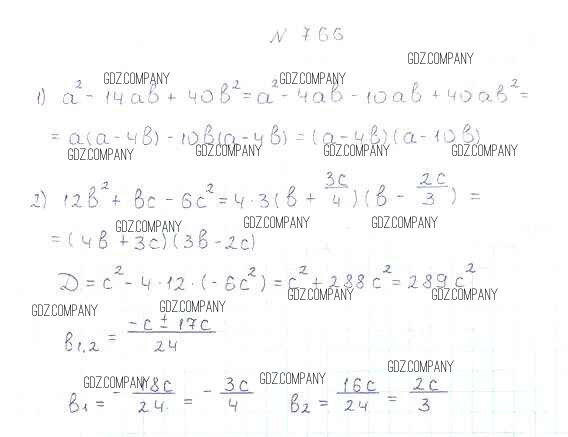 N 766
GDZ.COMPANY
GDZ.COMPANY GDZ.COMPANY
1) a² - 14ab + 40b² = a² - 4ab - 10ab + 40ab² =
= a(a - 4b) - 10b(a - 4b) = (a - 4b)(a - 10b)
GDZ.COMPANY GDZ.COMPANY GDZ.COMPANY GDZ.COMPANY
2) 12b² + bc - 6c² = 4·3(b + 3c/4)(b - 2c/3) =
GDZ.COMPANY GDZ.COMPANY GDZ.COMPANY
= (4b + 3c)(3b - 2c)
D = c² - 4·12·(-6c²) = c² + 288c² = 289c²
GDZ.COMPANY GDZ.COMPANY
GDZ.COMPANY GDZ.COMPANY
b1,2 = -c ± 17c / 24
GDZ.COMPANY
GDZ.COMPANY GDZ.COMPANY
b1 = - 18c/24 = - 3c/4 b2 = 16c/24 = 2c/3